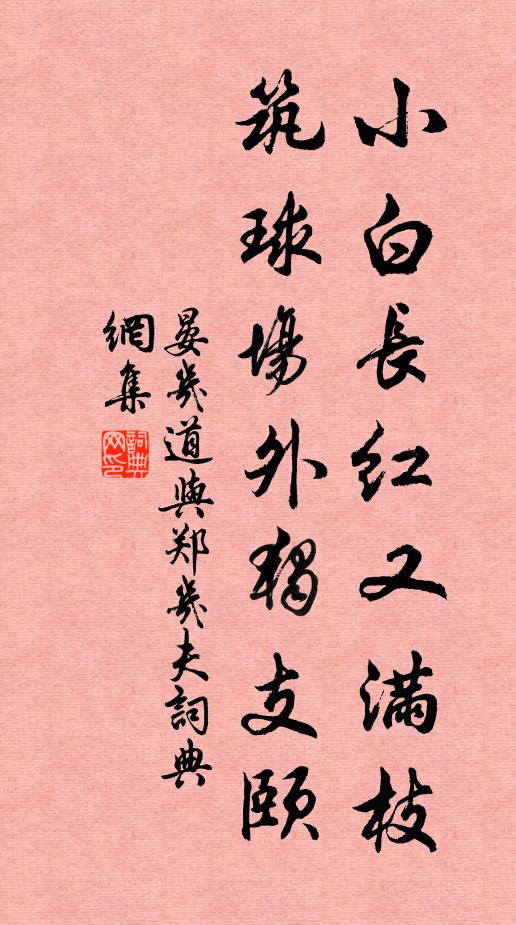 小白長红又滿枝
筑球場外獨支頤
晏幾道與郑幾夫詞典
網集
詞典
网印